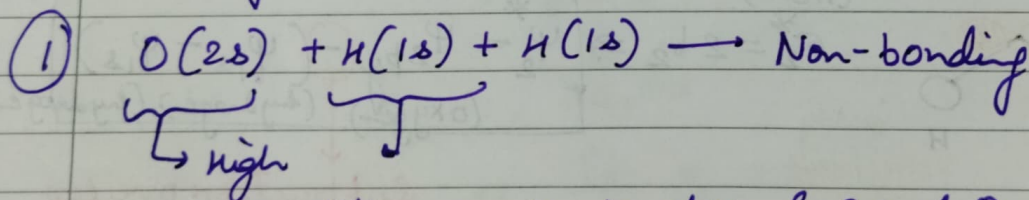 ① O(2s) + H(1s) + H(1s) → Non-bonding
High